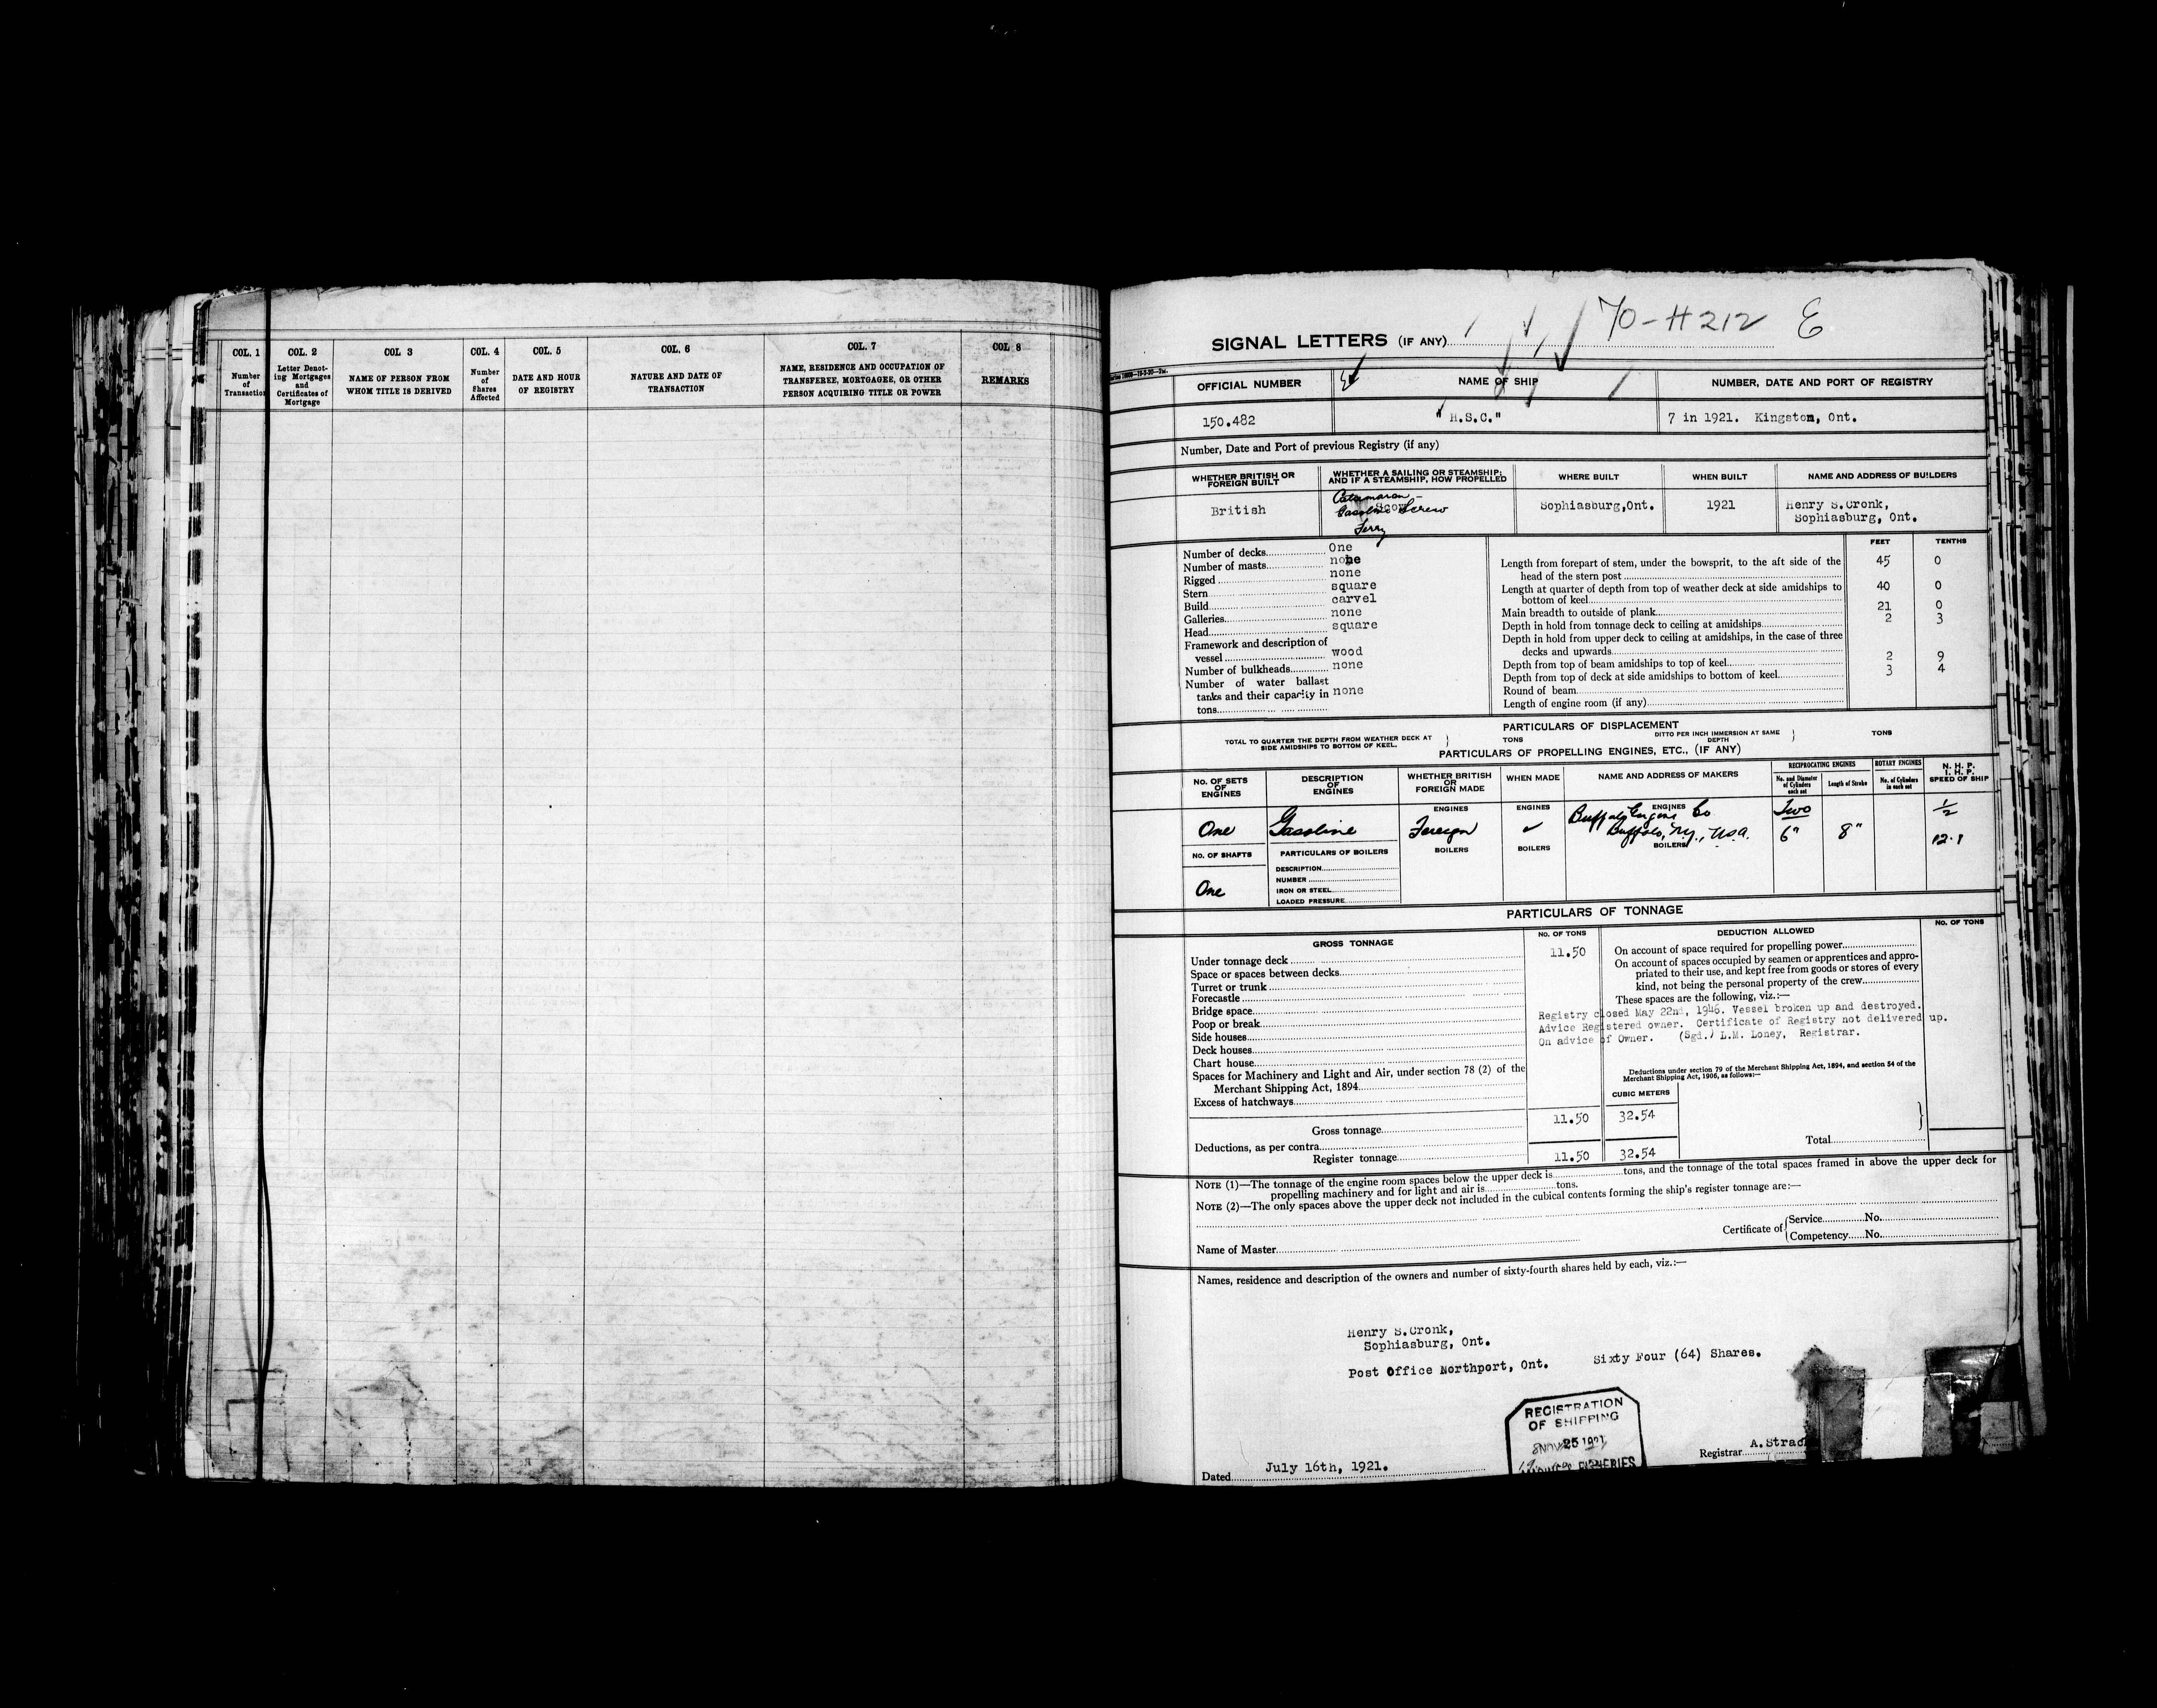 COL. 1
Number
of
Transaction
COL. 2
Letter Denot-
ing Mortgages
and
Certificates of
Mortgage
COL 3
NAME OF PERSON FROM
WHOM TITLE IS DERIVED
COL. 4
Number
of
Shares
Affected
COL. 5
DATE AND HOUR
OF REGISTRY
COL. 6
NATURE AND DATE OF
TRANSACTION
COL. 7
NAME, RESIDENCE AND OCCUPATION OF
TRANSFEREE, MORTGAGEE, OR OTHER
PERSON ACQUIRING TITLE OR POWER
COL 8
REMARKS
70-H212 E
SIGNAL LETTERS (IF ANY)
OFFICIAL NUMBER
NAME OF SHIP
NUMBER, DATE AND PORT OF REGISTRY
150.482
"H.S.C."
7 in 1921. Kingston, Ont.
Number, Date and Port of previous Registry (if any)
WHETHER BRITISH OR
FOREIGN BUILT
WHETHER A SAILING OR STEAMSHIP;
AND IF A STEAMSHIP, HOW PROPELLED
WHERE BUILT
WHEN BUILT
NAME AND ADDRESS OF BUILDERS
British
Catamaran -
Gasoline Screw
Ferry
Sophiasburg,Ont.
1921
Henry S.Cronk,
Sophiasburg, Ont.
FEET TENTHS
Number of decks One
Number of masts none
Rigged none
Stern square
Build carvel
Galleries none
Head square
Framework and description of
vessel wood
Number of bulkheads none
Number of water ballast
tanks and their capacity in none
tons
Length from forepart of stem, under the bowsprit, to the aft side of the
head of the stern post 45 0
Length at quarter of depth from top of weather deck at side amidships to
bottom of keel 40 0
Main breadth to outside of plank 21 0
Depth in hold from tonnage deck to ceiling at amidships 2 3
Depth in hold from upper deck to ceiling at amidships, in the case of three
decks and upwards
Depth from top of beam amidships to top of keel 2 9
Depth from top of deck at side amidships to bottom of keel 3 4
Round of beam
Length of engine room (if any)
PARTICULARS OF DISPLACEMENT
TOTAL TO QUARTER THE DEPTH FROM WEATHER DECK AT
SIDE AMIDSHIPS TO BOTTOM OF KEEL. } TONS
DITTO PER INCH IMMERSION AT SAME
DEPTH } TONS
PARTICULARS OF PROPELLING ENGINES, ETC., (IF ANY)
NO. OF SETS
OF
ENGINES
DESCRIPTION
OF
ENGINES
WHETHER BRITISH
OR
FOREIGN MADE
WHEN MADE
NAME AND ADDRESS OF MAKERS
RECIPROCATING ENGINES
No. and Diameter
of Cylinders
each set
Length of Stroke
ROTARY ENGINES
No. of Cylinders
in each set
N. H. P.
I. H. P.
SPEED OF SHIP
ENGINES ENGINES ENGINES
One Gasoline Foreign ✓ Buffalo Engine Co Two 1/2
Buffalo, N.Y., U.S.A. 6" 8" 12.1
NO. OF SHAFTS
PARTICULARS OF BOILERS
BOILERS BOILERS BOILERS
One
DESCRIPTION
NUMBER
IRON OR STEEL
LOADED PRESSURE
PARTICULARS OF TONNAGE
GROSS TONNAGE
NO. OF TONS
DEDUCTION ALLOWED
NO. OF TONS
Under tonnage deck 11.50
Space or spaces between decks
Turret or trunk
Forecastle
Bridge space
Poop or break
Side houses
Deck houses
Chart house
Spaces for Machinery and Light and Air, under section 78 (2) of the
Merchant Shipping Act, 1894
Excess of hatchways
Gross tonnage 11.50
Deductions, as per contra
Register tonnage 11.50
On account of space required for propelling power
On account of spaces occupied by seamen or apprentices and appro-
priated to their use, and kept free from goods or stores of every
kind, not being the personal property of the crew
These spaces are the following, viz.:—
Registry closed May 22nd, 1946. Vessel broken up and destroyed.
Advice Registered owner. Certificate of Registry not delivered up.
On advice of Owner. (Sgd.) L.M. Loney, Registrar.
Deductions under section 79 of the Merchant Shipping Act, 1894, and section 54 of the
Merchant Shipping Act, 1906, as follows:—
CUBIC METERS
32.54
32.54
Total
NOTE (1)—The tonnage of the engine room spaces below the upper deck is tons, and the tonnage of the total spaces framed in above the upper deck for
propelling machinery and for light and air is tons.
NOTE (2)—The only spaces above the upper deck not included in the cubical contents forming the ship's register tonnage are:—
Name of Master
Certificate of { Service No.
Competency No.
Names, residence and description of the owners and number of sixty-fourth shares held by each, viz.:—
Henry S.Cronk,
Sophiasburg, Ont.
Post Office Northport, Ont. Sixty Four (64) Shares.
REGISTRATION
OF SHIPPING
NOV 25 1921
FISHERIES
Dated July 16th, 1921.
Registrar A.Strac